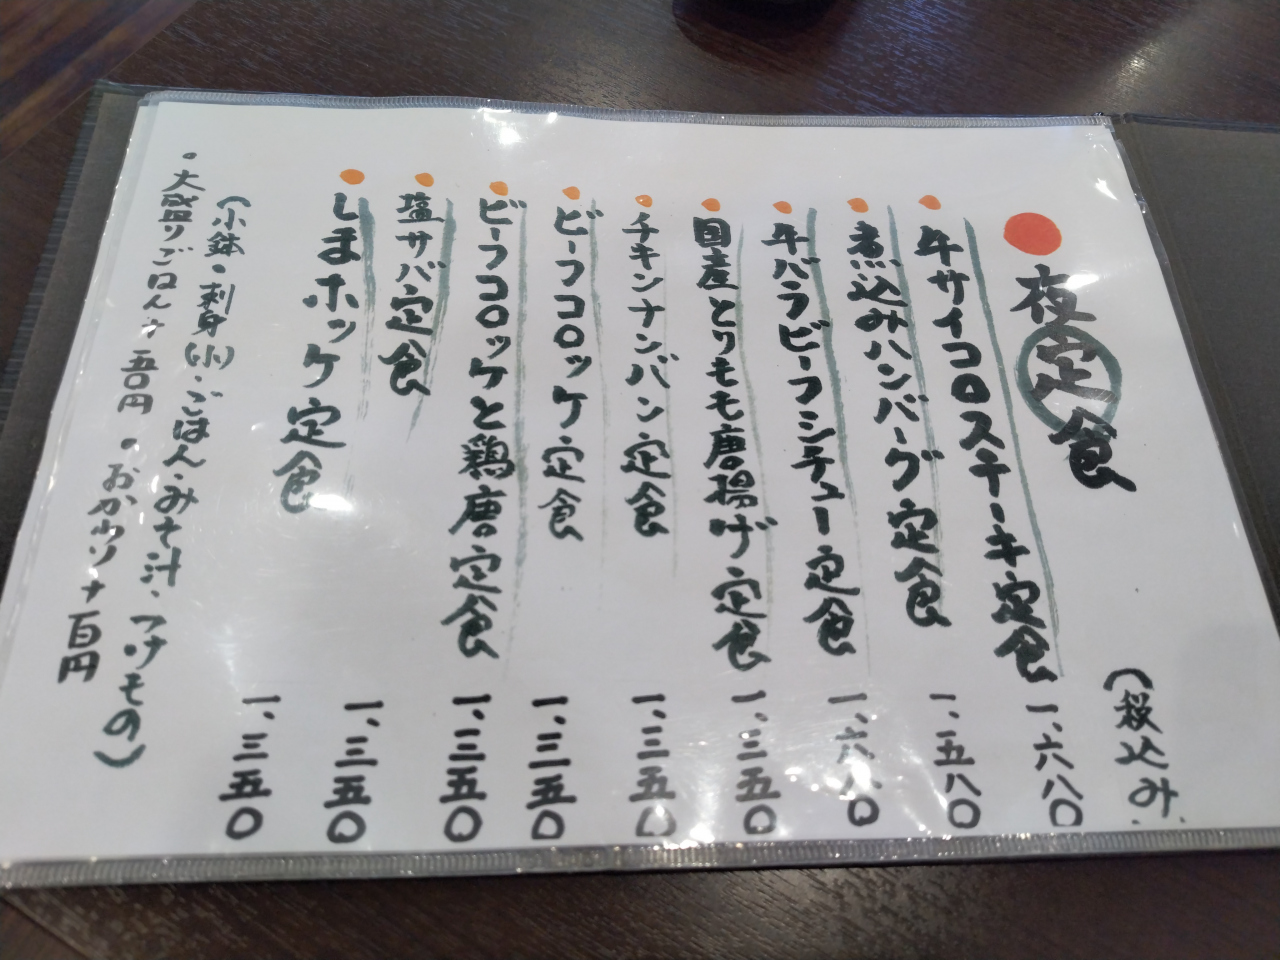 夜定食
(税込み)
牛サイコロステーキ定食 一、六八〇
煮込みハンバーグ定食 一、五八〇
牛バラビーフシチュー定食 一、六八〇
国産とりもも唐揚げ定食 一、三五〇
チキンナンバン定食 一、三五〇
ビーフコロッケ定食 一、三五〇
ビーフコロッケと鶏唐定食 一、三五〇
塩サバ定食 一、三五〇
しまホッケ定食 一、三五〇
(小鉢・刺身(小)・ごはん・みそ汁・つけもの)
・大盛りごはん+五〇円 ・おかわり+百円